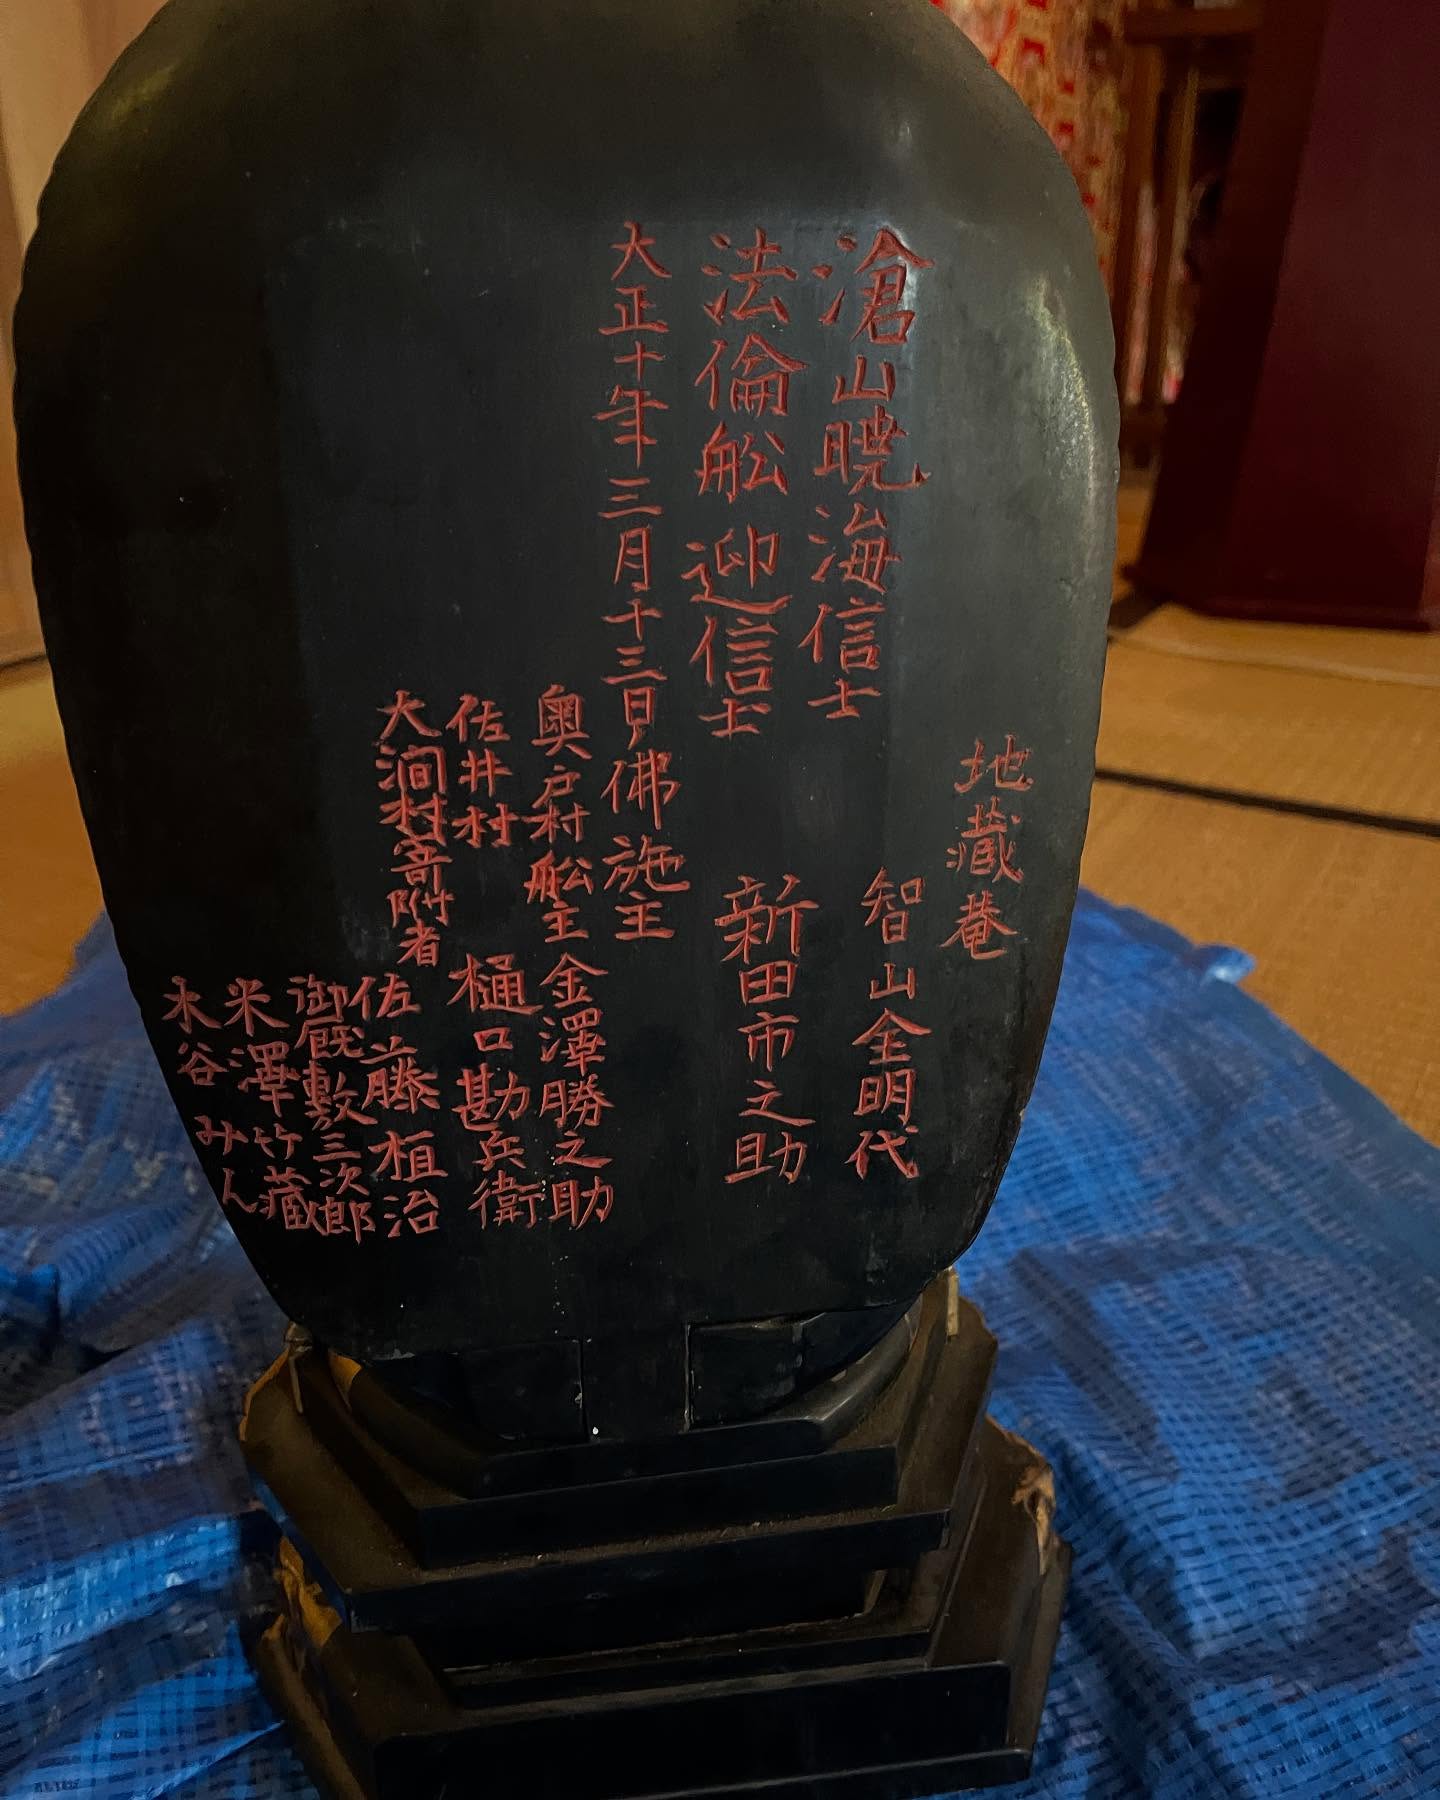 地藏菴
智山全明代
滄山暁海信士
法倫舩迎信士
新田市之助
大正十年三月十三日佛施主
奥戸村舩主 金澤勝之助
佐井村 樋口勘兵衛
大澗村寄附者
佐藤植治
御厩敷三次郎
米澤竹藏
水谷みん